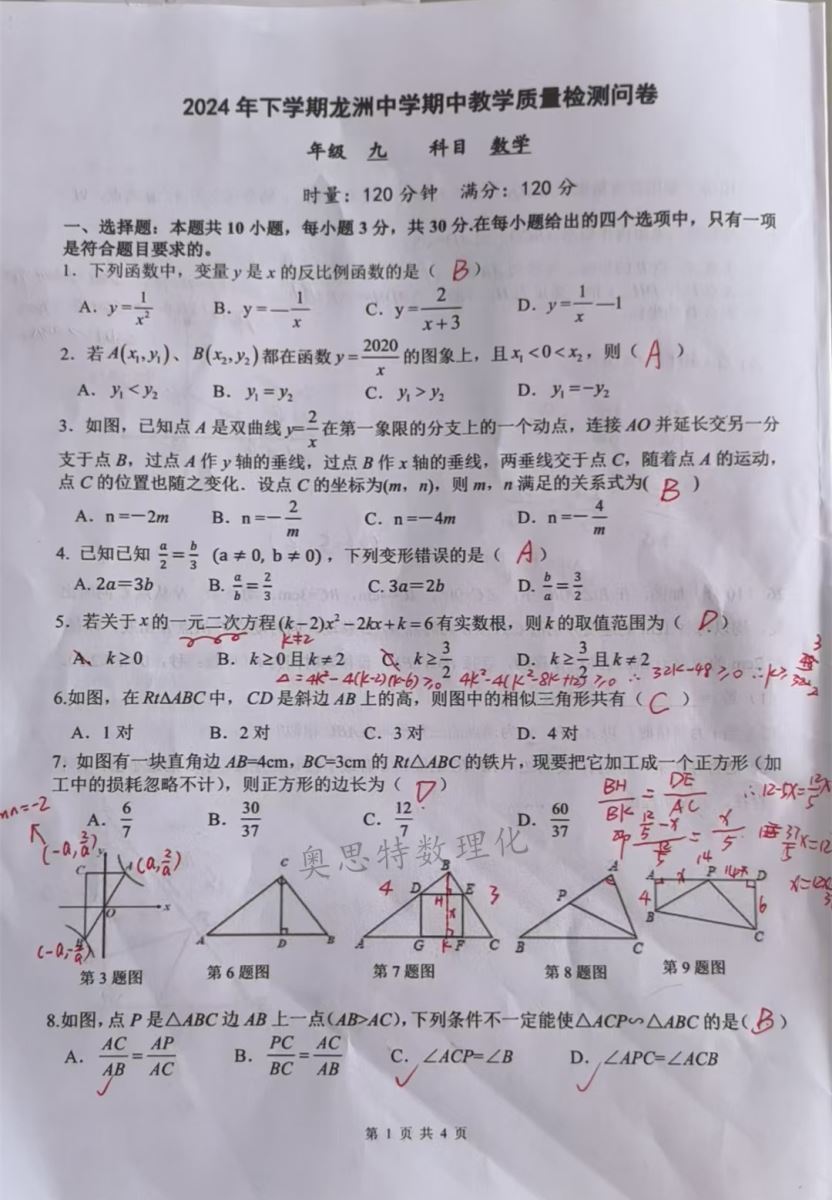 2024 年下学期龙洲中学期中教学质量检测问卷
年级 九 科目 数学
时量：120 分钟 满分：120 分
一、选择题：本题共 10 小题，每小题 3 分，共 30 分.在每小题给出的四个选项中，只有一项
是符合题目要求的。
1．下列函数中，变量 y 是 x 的反比例函数的是（ B ）
A．y=1/x² B．y=—1/x C．y=2/(x+3) D．y=1/x—1
2．若 A(x₁,y₁)、B(x₂,y₂)都在函数 y=2020/x 的图象上，且 x₁<0<x₂，则（ A ）
A．y₁<y₂ B．y₁=y₂ C．y₁>y₂ D．y₁=-y₂
3．如图，已知点 A 是双曲线 y=2/x 在第一象限的分支上的一个动点，连接 AO 并延长交另一分
支于点 B，过点 A 作 y 轴的垂线，过点 B 作 x 轴的垂线，两垂线交于点 C，随着点 A 的运动，
点 C 的位置也随之变化．设点 C 的坐标为(m，n)，则 m，n 满足的关系式为( B )
A．n=—2m B．n=—2/m C．n=—4m D．n=—4/m
4．已知已知 a/2=b/3 (a≠0, b≠0)，下列变形错误的是（ A ）
A. 2a=3b B. a/b=2/3 C. 3a=2b D. b/a=3/2
5．若关于 x 的一元二次方程(k-2)x²-2kx+k=6有实数根，则 k 的取值范围为（ D ）
k≠2
A．k≥0 B．k≥0且k≠2 C．k≥3/2 D．k≥3/2且k≠2
△=4k²-4(k-2)(k-6)≥0 4k²-4(k²-8k+12)≥0 ∴32k-48≥0 ∴k≥
6.如图，在 Rt△ABC 中，CD 是斜边 AB 上的高，则图中的相似三角形共有（ C ）
A．1 对 B．2 对 C．3 对 D．4 对
7．如图有一块直角边 AB=4cm，BC=3cm 的 Rt△ABC 的铁片，现要把它加工成一个正方形（加
工中的损耗忽略不计），则正方形的边长为（ D ）
A．6/7 B．30/37 C．12/7 D．60/37
BH/BK=DE/AC ∴12-5x=12/5x
mn=-2
奥思特数理化
(-a,2/a) (a,2/a)
(-a,-2/a)
C y A O x B
C A D B
4 B 3 D H E x A G K F C
A P B C
14 A x P 14-x D 4 6 B C
第 3 题图 第 6 题图 第 7 题图 第 8 题图 第 9 题图
8.如图，点 P 是△ABC 边 AB 上一点(AB>AC)，下列条件不一定能使△ACP∽△ABC 的是( B )
A．AC/AB=AP/AC B．PC/BC=AC/AB C．∠ACP=∠B D．∠APC=∠ACB
第 1 页 共 4 页